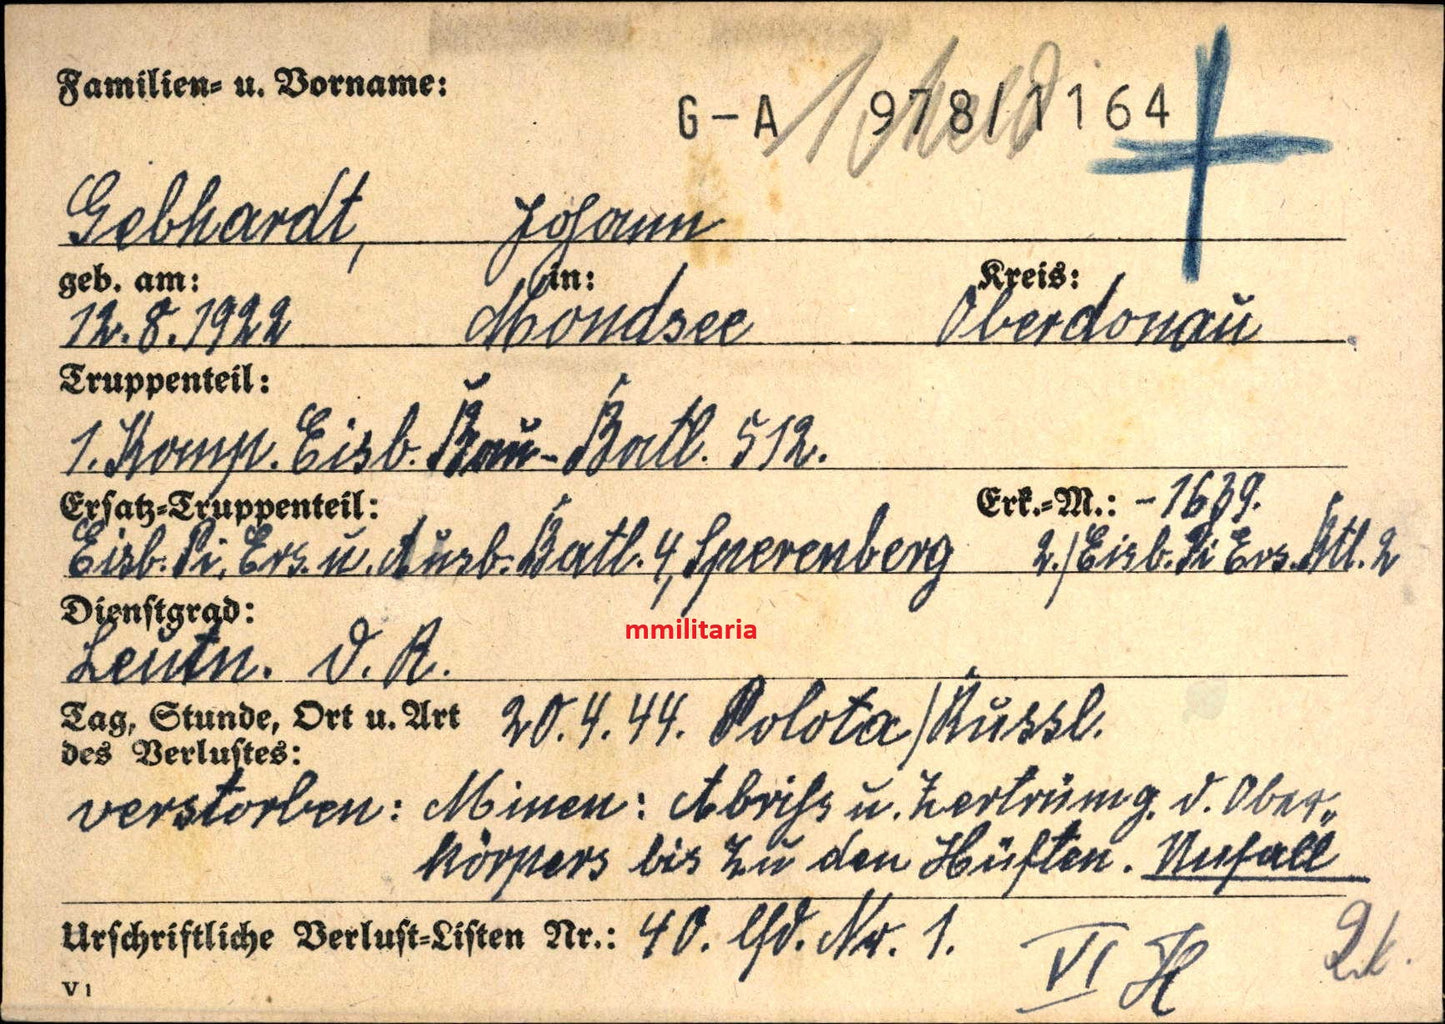 Familien- u. Vorname:
G-A 978/1164
Gebhardt, Johann
geb. am: in: Kreis:
12.8.1922 Mondsee Oberdonau
Truppenteil:
1. Komp. Eisb. Bau-Batl. 512.
Ersatz-Truppenteil: Erk.-M.: -1639.
Eisb. Pi. Ers. u. Ausb. Batl. 4, Sperenberg 2./Eisb. Pi Ers. Btl. 2
Dienstgrad:
mmilitaria
Leutn. d. R.
Tag, Stunde, Ort u. Art 20.4.44. Polota/Russl.
des Verlustes:
verstorben: Minen: Abriß u. Zertrümg. d. Ober„
körpers bis zu den Hüften. Unfall
Urschriftliche Verlust-Listen Nr.: 40. lfd. Nr. 1.
VI H
V 1